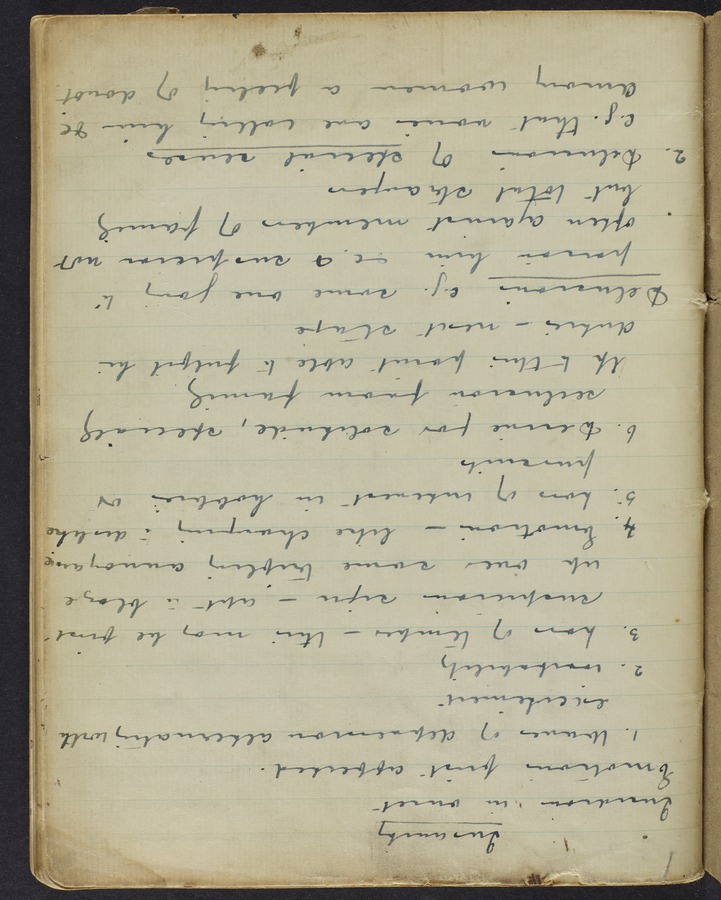 Insanity
Insidious in onset
Emotions first affected.
1. Waves of depression alternating with
excitement
2. irritability
3. Loss of temper – this may be first
suspicious sign – apt to blaze
up over some trifling annoyance
4. Emotions – like changing to dislike
5. Loss of interest in hobbies or
pursuits
6. Desire for solitude, specially
seclusion from family
Up to this point able to fulfil his
duties – next stage
Delusions e.g. some one going to
poison him &c & suspicion not
often against members of family
but total strangers
2. Delusions of special senses
e.g. that voices are calling him &c
among women a feeling of doubt